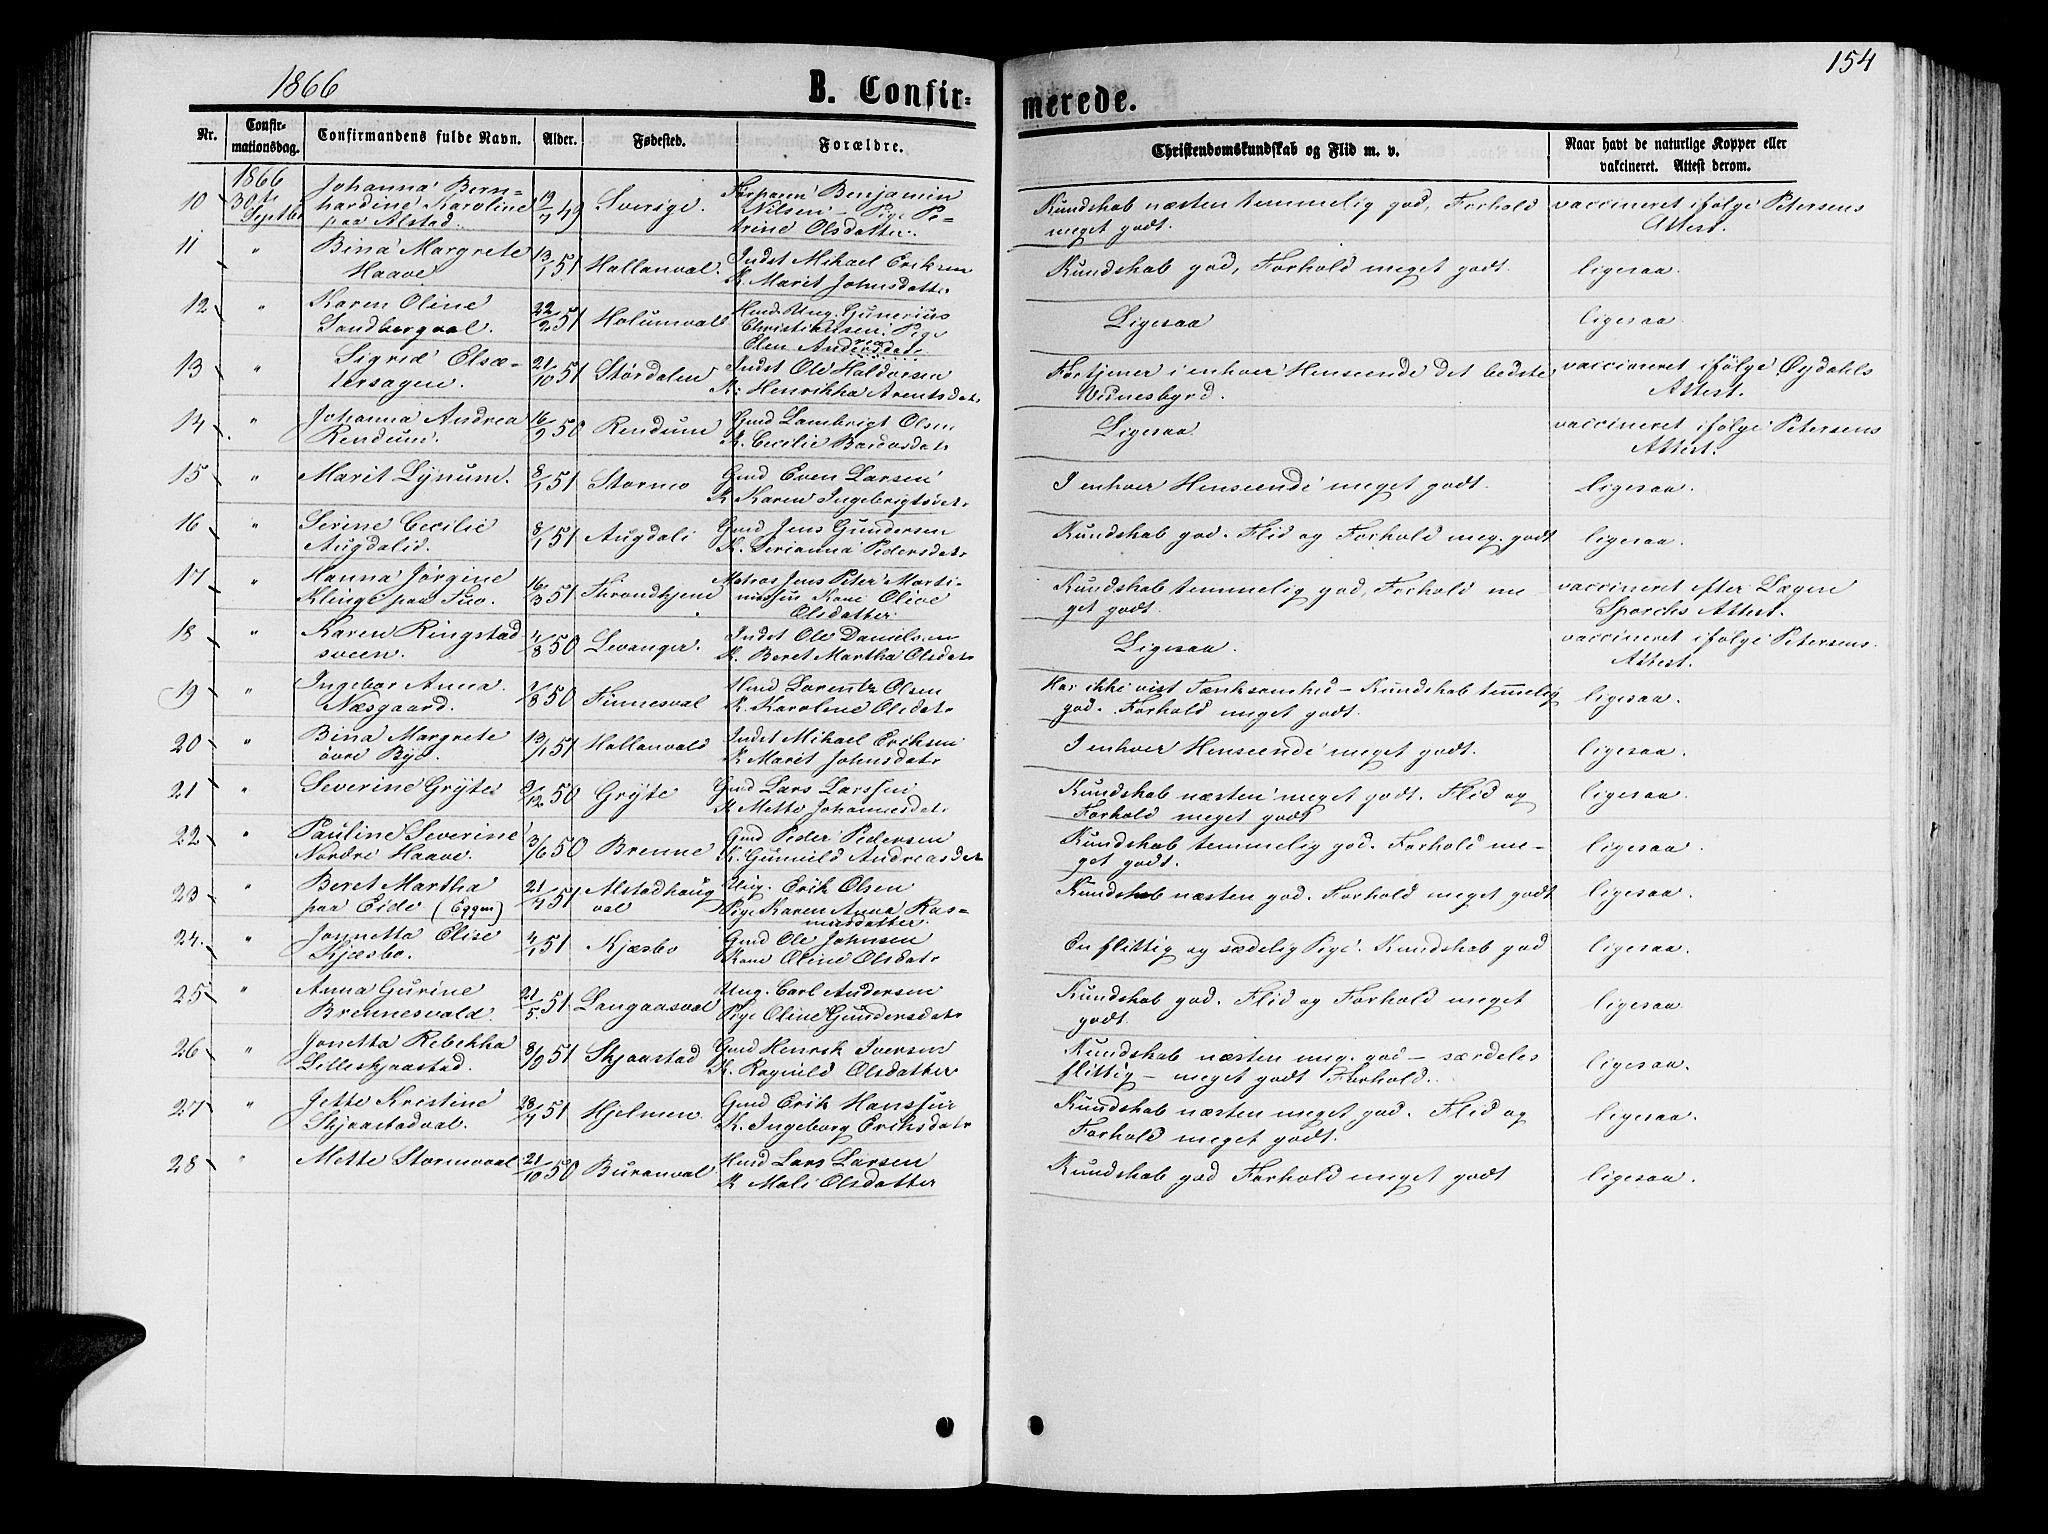 1866
B. Confir=
merede.
154
Nr.
Confir-
mationsdag.
Confirmandens fulde Navn.
Alder.
Fødested.
Forældre.
Christendomskundskab og Flid m. v.
Naar havt de naturlige Kopper eller
vakcineret. Attest derom.
1866
10 30te Septbr Johanna Bern-
hardine Karoline
paa Alstad. 12/7 49 Sverige. Benjamin
Nilsen - Pige Pe-
trine Olsdatter.
Kundskab næsten temmelig god, Forhold
meget godt.
vaccineret ifølge Petersens
Attest.
11 " Bina Margrete
Haave 13/1 51 Hallanval. Indst Mikael Eriksen
K. Marit Johnsdatter
Kundskab god, Forhold meget godt.
ligesaa.
12 " Karen Oline
Sandbergval. 22/2 51 Holumvald Ung. Gunerius
Christiansen. Pige
Elen Andersdatr
Ligesaa
ligesaa
13 " Sigrid Elsæ-
tersagen. 21/10 51 Størdalen Indst Ole Haldorsen
K. Henrikka Arentsdatr
Fortjener i enhver Henseende det bedste
Vidnesbyrd.
vaccineret ifølge Øydahls
Attest.
14 " Johanna Andrea
Rendum. 16/9 50 Rendum Gmd Lambrigt Olsen
K. Cecilie Bardosdatr
Ligesaa
vaccineret ifølge Petersens
Attest.
15 " Marit Lynum. 8/1 51 Stormo Gmd Even Larsen
K Karen Ingebrigtsdatr
I enhver Henseende meget godt.
ligesaa.
16 " Serine Cecilie
Augdalid. 8/1 51 Augdali Gmd Jens Gundersen
K. Serianna Pedersdatr
Kundskab god. Flid og Forhold meg. godt
ligesaa.
17 " Hanna Jørgine
Klinge paa Tuv. 16/3 51 Throndhjem Matros Jens Peter Marti-
niussen Kone Olive
Olsdatter
Kundskab temmelig god, Forhold me-
get godt.
vaccineret efter Lægen
Sporchs Attest.
18 " Karen Ringstad
sveen. 4/8 50 Levanger. Indst Ole Danielsen
K. Beret Martha Olsdatr
Ligesaa.
vaccineret ifølge Petersens
Attest.
19 " Ingebor Anna
Næsgaard. 1/8 50 Finnesval Hmd Lorentz Olsen
K. Karoline Olsdatr
Har ikke vist Tænksomhed - Kundskab temmelig
god. Forhold meget godt.
ligesaa.
20 " Bina Margrete
øvre Bye. 13/1 51 Hallanvald Indst Mikael Eriksen
K Marit Johnsdatr
I enhver Henseende meget godt.
ligesaa.
21 " Severine Gryte 2/12 50 Gryte Gmd Lars Larssen
K Mette Johannesdatr
Kundskab næsten meget godt. Flid og
Forhold meget godt
ligesaa.
22 " Pauline Severine
Nordre Haave. 3/6 50 Brenne Gmd Peder Pedersen
K. Gunnild Andreasdatr
Kundskab temmelig god. Forhold me-
get godt.
ligesaa.
23 " Beret Martha
paa Eide (Eggen) 21/4 51 Alstadhaug
val Ung. Erik Olsen
Pige Karen Anna Ras-
musdatter.
Kundskab næsten god. Forhold meget godt
ligesaa.
24. " Jonnetta Elise
Kjæsbo. 4/1 51 Kjæsbo Gmd Ole Johnsen
Kone Oline Olsdatr
En flittig og sædelig Pige. Kundskab god
ligesaa.
25 " Anna Gurine
Brennesvald. 21/5. 51 Langaasval Ung. Carl Andersen
Pige Oline Gundersdatr
Kundskab god. Flid og Forhold meget
godt.
ligesaa
26 " Jonetta Rebekka
Lilleskjaastad. 8/2 51 Skjaastad Gmd Henrik Iversen
K. Ragnild Olsdatter
Kundskab næsten meg. god - særdeles
flittig - meget godt Forhold.
ligesaa.
27 " Jette Kristine
Skjaastadval. 28/7 51 Hjelmen Gmd Erik Hanssen
K. Ingeborg Eriksdatr
Kundskab næsten meget god. Flid og
Forhold meget godt.
ligesaa.
28 " Mette Stormoval 21/10 50 Buranval Hmd Lars Larsen
K Mali Olsdatter
Kundskab god Forhold meget godt
ligesaa.